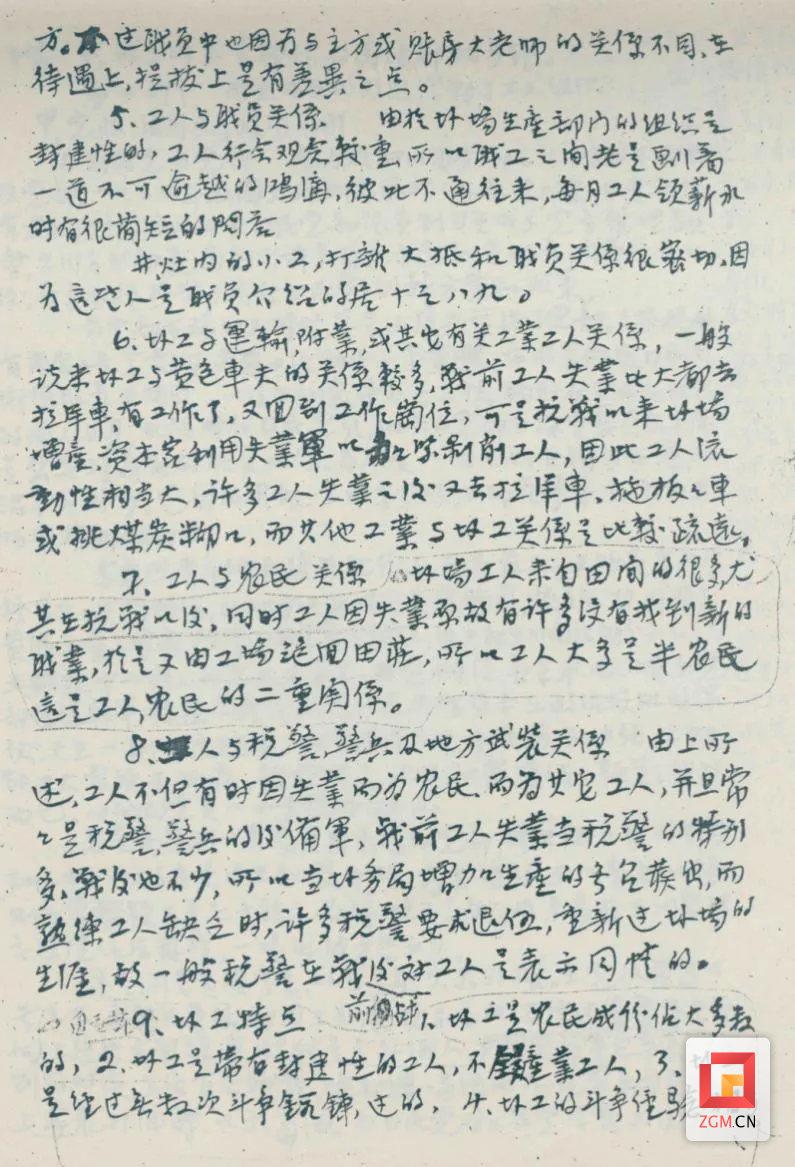 方。这职员中也因为与主方或账房大老师的关係不同,在
待遇上,提拔上是有差異之点。
5、工人与职员关係 由於坏場生産部门的组织是
封建性的,工人行会观念較重,所以职工之间老是劃着
一道不可逾越的鸿溝,彼此不通往来,每月工人领薪水
时有很简短的问答
井灶内的小工,打雜大抵和职员关係很密切,因
为這些人是职员介绍的居十之八九。
6、坏工与運輸,附業,或其它有关工業工人关係,一般
说来坏工与黄包車夫的关係較多,战前工人失業比大都去
拉洋車,有工作了,又回到工作崗位,可是抗战以来坏場
增産,資本家利用失業軍以加紧剥削工人,因此工人流
動性相当大,许多工人失業之後又去拉洋車,拖板々車
或挑煤炭糊口,而其他工業与坏工关係是比較疏遠。
7、工人与农民关係 坏場工人来自田间的很多,尤
其在抗战以後,同时工人因失業原故有许多没有找到新的
职業,於是又由工場返回田莊,所以工人大多是半农民
這是工人,农民的二重関係。
8、工人与税警,警兵及地方武装关係 由上所
述,工人不但有时因失業而为农民,而为其它工人,并且常
々是税警,警兵的後備軍,战前工人失業当税警的特别
多,战後也不少,所以当坏务局增加生産的号召發出,而
熟練工人缺乏时,许多税警要求退伍,重新过坏場的
生涯,故一般税警在战後对工人是表示同情的。
9、坏工特点 1、坏工是农民成份佔大多数
的,2、坏工是帶有封建性的工人,不是産業工人,3、坏
是经过无数次斗争锻鍊,过的,4、坏工的斗争经驗
ZGM.CN